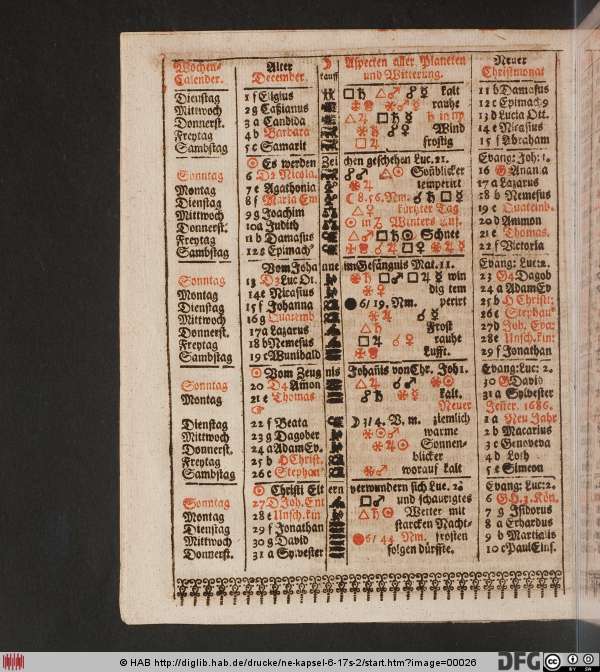 Wochen- Alter ☽ Aspecten aller Planeten Neuer
Calender. December. lauff und Witterung. Christmonat
Dienstag 1 f Eligius □ ♄ △ ♂ ☍ ☿ kalt 11 b Damasus
Mittwoch 2 g Caßianus rauhe 12 c Epimach9
Donnerst. 3 a Candida 13 d Lucia Ott.
Freytag 4 b Barbara Wind 14 e Nicasius
Sambstag 5 c Samarit □ ♃ frostig 15 f Abraham
☉ Es werden Zei chen geschehen Luc. 21. Evang: Joh: 1.
Sonntag 6 D2 Nicola. Soñblicker 16 G Anania
Montag 7 e Agathonia temperirt 17 a Lazarus
Dienstag 8 f Maria Em ☾ 8. 56. Nm. ☍ ♄ □ ☿ 18 b Nemesus
Mittwoch 9 g Joachim △ ♀ kürtzter Tag 19 c Quatemb.
Donnerst. 10 a Judith ☉ in ♑ Winters Anf. 20 d Ammon
Freytag 11 b Damasus △ ♂ □ ♄ ☉ Schnee 21 e Thomas.
Sambstag 12 c Epimach9 22 f Victoria
Vom Joha nne im Gefängnis Mat. 11. Evang: Luc: 2.
Sonntag 13 D3 Luc Ot. win 23 G4 Dagob
Montag 14 e Nicasius dig tem 24 a Adam Ev
Dienstag 15 f Johanna 6/ 19. Nm. perirt 25 b H Christ:
Mittwoch 16 g Quatemb ☍ ☿ 26 c Stephan9
Donnerst. 17 a Lazarus △ ♄ Frost 27 d Joh. Eva:
Freytag 18 b Nemesus □ ♃ ☌ ♀ rauhe 28 e Unsch. kin:
Sambstag 19 c Wunibald Lufft. 29 f Jonathan
☉ Vom Zeug nis Johañis von Chr. Joh 1. Evang: Luc: 2.
Sonntag 20 D4 Amon △ ♃ 30 G David
Montag 21 e Thomas kalt. 31 a Sylvester
Neuer Jener. 1686.
Dienstag 22 f Beata ☽ 3/ 4. V. m. ziemlich 1 a Neu Jahr
Mittwoch 23 g Dagober warme 2 b Macarius
Donnerst. 24 a Adam Ev. Sonnen- 3 c Genoveva
Freytag 25 b H Christ. blicker 4 d Loth
Sambstag 26 c Stephan9 worauf kalt 5 e Simeon
☉ Christi Elt ern verwundern sich Luc. 2. Evang: Luc: 2.
Sonntag 27 D Joh. Ent □ ♂ und schaurigtes 6 G H. 3. Kön.
Montag 28 e Unsch. kin △ ♄ ☉ Wetter mit 7 g Isidorus
Dienstag 29 f Jonathan starcken Nacht- 8 a Erhardus
Mittwoch 30 g David 6/ 44. Nm. frosten 9 b Martialis
Donnerst. 31 a Sylvester folgen dürffte. 10 c Paul Eins.
© HAB http://diglib.hab.de/drucke/ne-kapsel-6-17s-2/start.htm?image=00026
DFG
CC BY SA